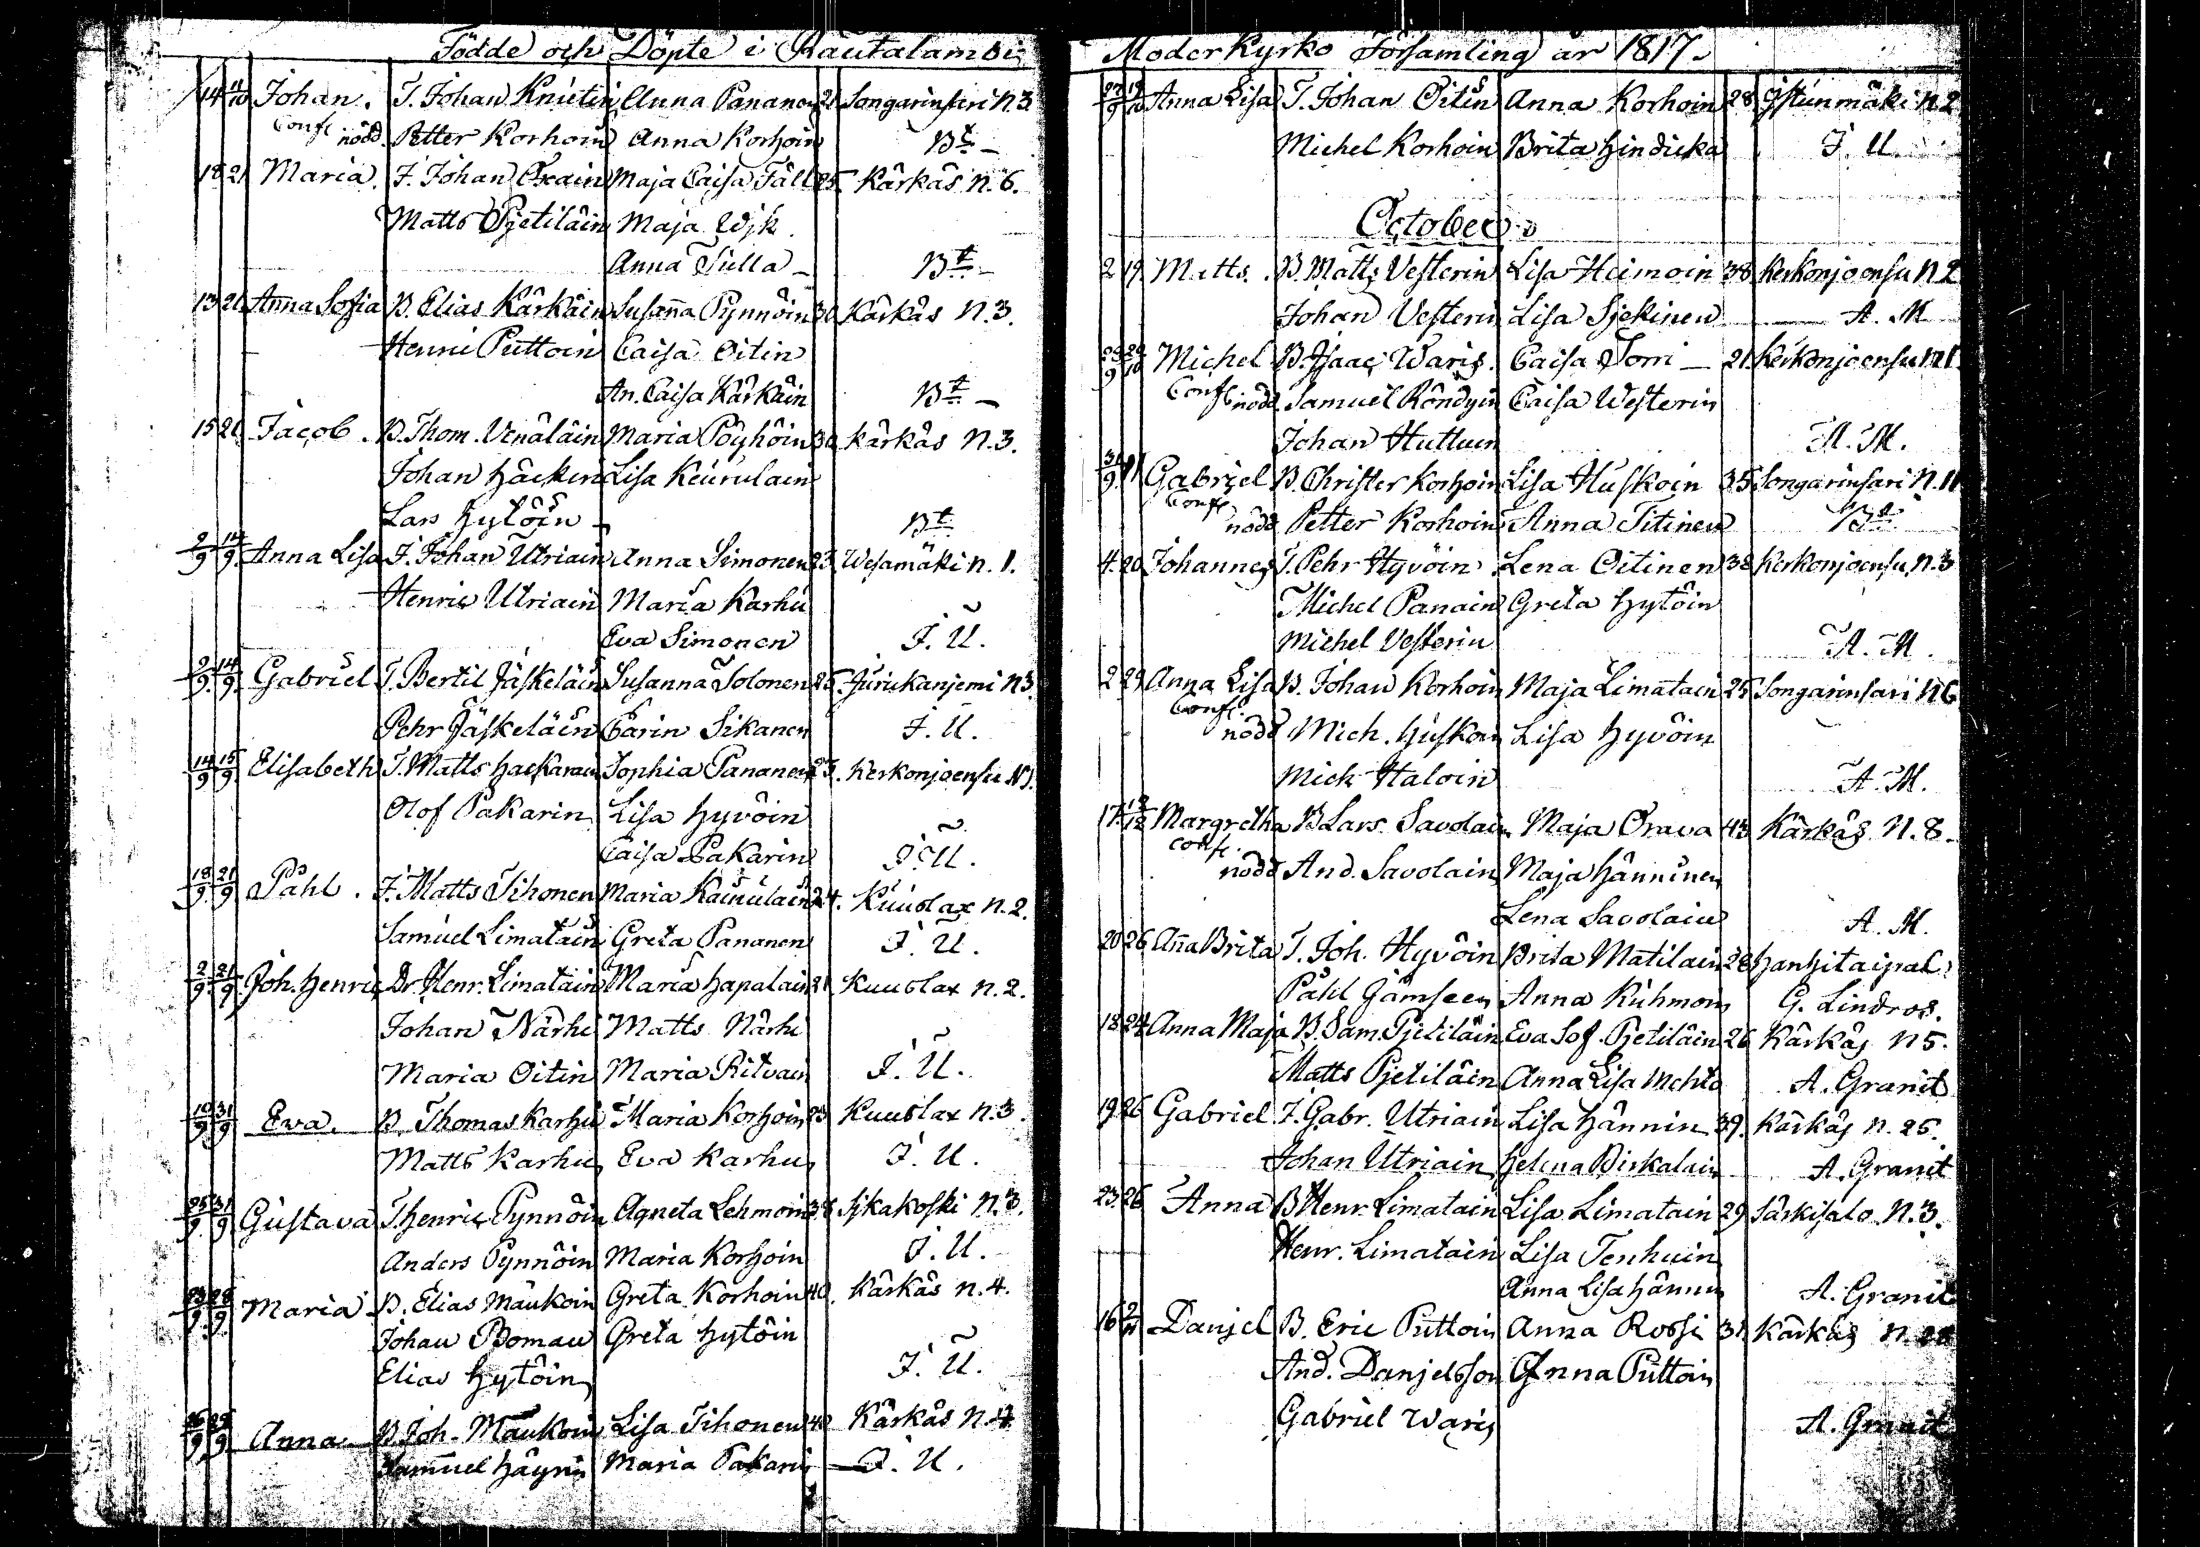 Födde och Döpte i Rautalambi
14 11/10 Johan. T. Johan Knutin Anna Pananen 21 Songarinsari N.3
Confl nödd. Petter Korhoin Anna Korhoin Bt
18 21 Maria. J. Johan Oxain Maja Caisa Fäll 25. Kärkäs N.6.
Matts Pjetiläin Maja Wjk.
Anna Tulla Bt
13 21 Anna Sofia B. Elias Kärkäin Susanna Pynnöin 30 Kärkäs N.3.
Henric Puttoin Caisa Oitin
An. Caisa Kärkäin Bt
15 21 Jacob. B. Thom. Venäläin Maria Pöyhöin 30 Kärkäs N.3.
Johan Häckin Lisa Keurulain
Lars Hytöin Bt
2/9 14/9 Anna Lisa J. Johan Utriain Anna Simonen 23. Wesamäki N.1.
Henric Utriain Maria Karhu
Eva Simonen J. U.
2/9. 14/9. Gabriel T. Bertil Jäskeläin Susanna Tolonen 25. Jurickanjemi N3.
Pehr Jäskeläin Carin Sikanen J. U.
14/9 15/9 Elisabeth T. Matts Hackarain Sophia Pananen 23. Kerkonjoensu N1.
Olof Pakarin Lisa Hyvöin
Caisa Pakarin J. U.
18/9 21/9 Påhl. J. Matts Tihonen Maria Kainulain 24. Kuuslax N.2.
Samuel Limatain Greta Pananen J. U.
2/9 21/9 Joh. Henric Dr. Henr. Limatain Maria Hapalain 21 Kuuslax N.2.
Johan Närhi Matts Närhi
Maria Oitin Maria Ritvain J. U.
10/9 31/9 Eva. B. Thomas Karhu Maria Korhoin 23 Kuuslax N.3.
Matts Karhu Eva Karhu J. U.
25/9. 31/9. Gustava T. Henric Pynnöin Agneta Lehmoin 38 Sjkakoski N.3.
Anders Pynnöin Maria Korhoin J. U.
23/9. 28/9. Maria B. Elias Maukoin Greta Korhoin 40. Kärkäs N.4.
Johan Boman Greta Hytöin
Elias Hytöin J. U.
26/9 28/9 Anna B. Joh. Maukoin Lisa Tihonen 40 Kärkäs N.4
Samuel Häyrin Maria Pakarin J. U.
Moder Kyrko Församling år 1817.
22/9 12/10 Anna Lisa T. Johan Oitin Anna Korhoin 28 Istunmäki N.2
Michel Korhoin Brita Hindicka J. U.
October
2 19 Matts. B. Matts Vesterin Lisa Heimoin 38 Kerkonjoensu N2
Johan Vesterin Lisa Sjekinen A. M
29/9 29/10 Michel B. Isaac Waris. Caisa Torri 21. Kerkonjoensu N21.
Confl nödd Samuel Röndyin Caisa Westerin
Johan Huttuin A. M.
31/9. 11 Gabriel B. Christer Korhoin Lisa Huskoin 35 Songarinsari N.11
Confl
nödd Petter Korhoin Anna Titinen Bt
4. 20 Johannes T. Pehr Hyvöin Lena Oitinen 38 Kerkonjoensu N.3
Michel Panain Greta Hytöin
Michel Vesterin A. M.
2 29 Anna Lisa B. Johan Korhoin Maja Limatain 25 Songarinsari N6
Confl.
nödd Mich. Huskoin Lisa Hyvöin
Mich Haloin A. M.
17. 12/12 Margretha B Lars Savolain Maja Orava 43 Kärkäs N.8.
Confl.
nödd And. Savolain Maja Hänninen
Lena Savolain A. M.
20 26 Anna Brita T. Joh. Hyvöin Brita Matilain 28 Hanhitaipal
Påhl Jämseen Anna Kuhmoin G. Lindros.
18 24 Anna Maja B. Sam. Pjetiläin Eva Sof. Pjetiläin 26 Kärkäs N5.
Matts Pjetiläin Anna Lisa Mehto A. Granit
19 26 Gabriel J. Gabr. Utriain Lisa Hännin 39. Kärkäs N. 25.
Johan Utriain Helena Pirkalain A. Granit
23 26 Anna B Henr. Limatain Lisa Limatain 29 Särkisalo N.3.
Henr. Limatain Lisa Tenhuin
Anna Lisa Hännin A. Granit
16 2/11 Danjel B. Eric Puttoin Anna Rossi 31 Kärkäs N.
And. Danjelsson Anna Puttoin
Gabriel Waris A. Granit